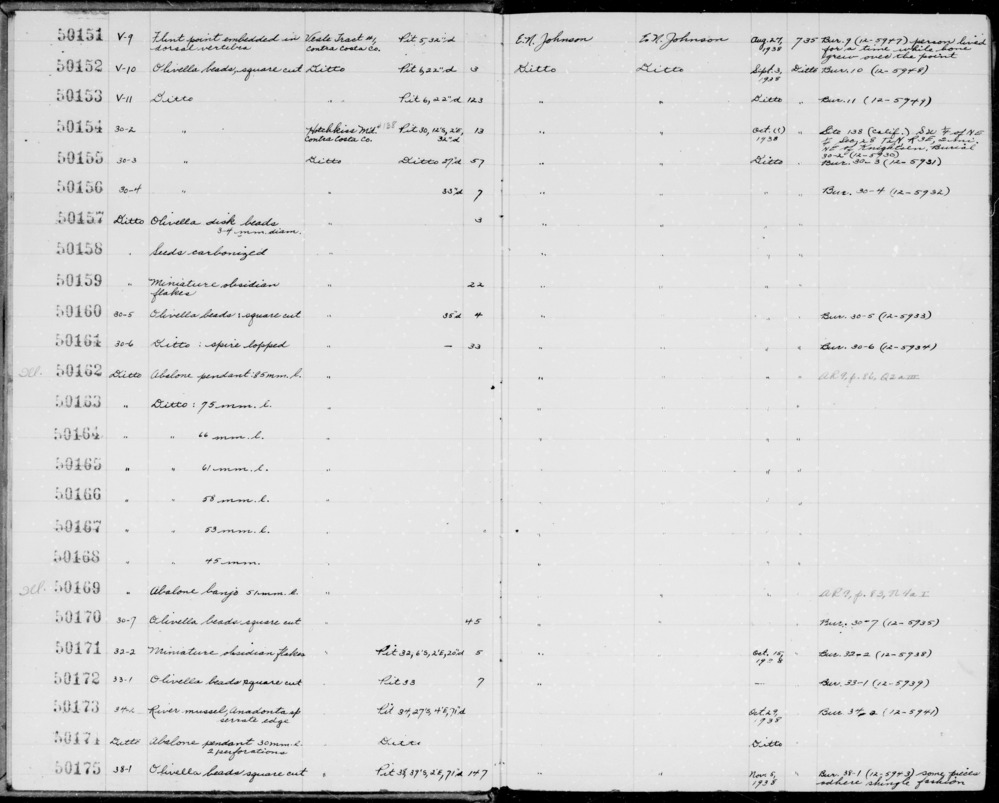 50151 V-9 Flint point embedded in Veale Tract #1, Pit 5, 32"d E.N. Johnson E.N. Johnson Aug. 27, 735 Bur. 9 (12-5947) person lived
dorsal vertebra Contra Costa Co. 1938 for a time while bone
grew over the point
50152 V-10 Olivella beads, square cut Ditto Pit 6, 22"d 3 Ditto Ditto Sept. 3, Ditto Bur. 10 (12-5948)
1938
50153 V-11 Ditto " Pit 6, 22"d 123 " " Ditto " Bur. 11 (12-5949)
50154 30-2 " Hotchkiss Md. #138 Pit 30, 12'S, 2'E, 13 " " Oct. (1) " Site 138 (Calif.)
Contra Costa Co. 32"d 1938
NE of Knightsen, Burial
30-2 (12-5930)
50155 30-3 " Ditto Ditto 27"d 57 " " Ditto " Bur. 30-3 (12-5931)
50156 30-4 " 33"d 7 " " " " Bur. 30-4 (12-5932)
50157 Ditto Olivella disk beads " 3 " " " "
3-4 mm. diam.
50158 " Seeds carbonized " " " " "
50159 " Miniature obsidian " 22 " " " "
flakes
50160 30-5 Olivella beads: square cut " 35"d 4 " " " " Bur. 30-5 (12-5933)
50161 30-6 Ditto : spire lopped " — 33 " " " " Bur. 30-6 (12-5934)
Ill. 50162 Ditto Abalone pendant: 85 mm. l. " " " " " AR 9, p. 86
50163 " Ditto: 75 mm. l. " " " " "
50164 " " 66 mm. l. " " " " "
50165 " " 61 mm. l. " " " " "
50166 " " 58 mm. l. " " " " "
50167 " " 53 mm. l. " " " " "
50168 " " 45 mm. " " " " "
Ill. 50169 " Abalone banjo 51 mm. l. " " " " " AR 9, p. 83
50170 30-7 Olivella beads square cut 45 " " " " Bur. 30-7 (12-5935)
50171 32-2 Miniature obsidian flakes " Pit 32, 6'S, 2'E, 20"d 5 " " Oct. 15, " Bur. 32-2 (12-5938)
1938
50172 33-1 Olivella beads square cut " Pit 33 7 " " — " Bur. 33-1 (12-5939)
50173 34-2 River mussel, Anadonta sp " Pit 34, 27'S, 4'E, 71"d " " Oct. 29, " Bur. 34-2 (12-5941)
serrate edge 1938
50174 Ditto Abalone pendant 30 mm. l. Ditto Ditto
2 perforations
50175 38-1 Olivella beads square cut " Pit 38, 39'S, 2'E, 71"d 147 " " Nov. 5, " Bur. 38-1 (12-5943) some pieces
1938 adhere shingle fashion